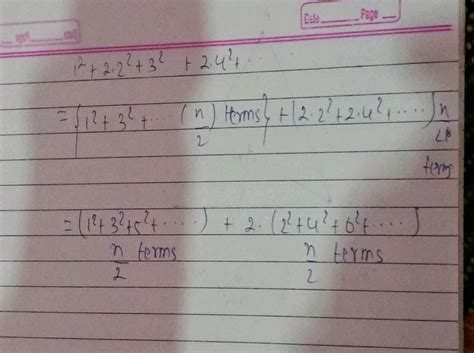 Date ___ Page ___
1² + 2·2² + 3² + 2·4² + ··
= {1² + 3² + ··· (n/2) terms} + (2·2² + 2·4² + ····) n/2
terms
= (1² + 3² + 5² + ·····) + 2·(2² + 4² + 6² + ····)
n/2 terms n/2 terms